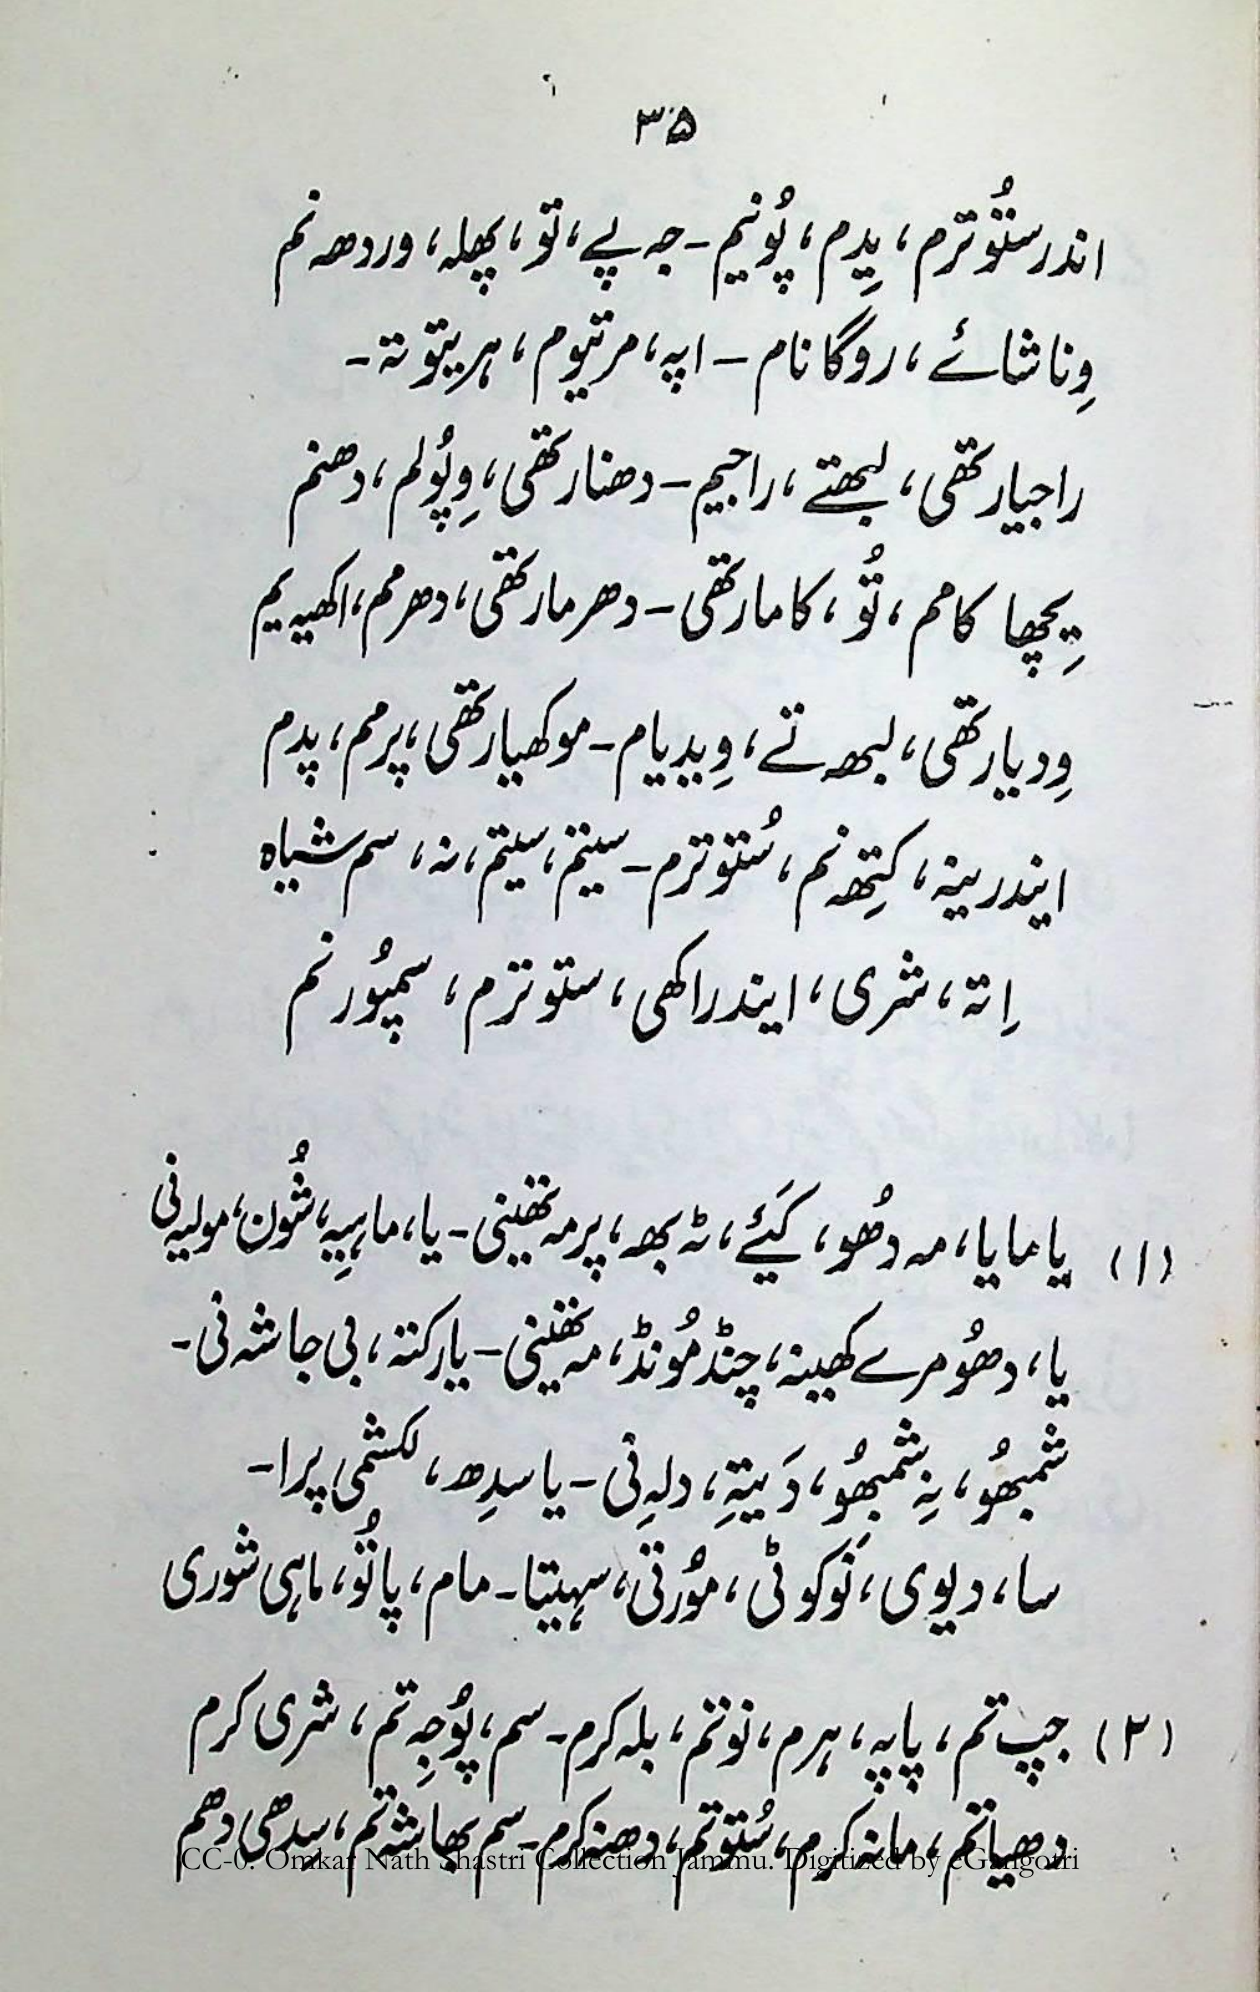 ۳۵
اندرستُوترم، یِدِم، پُونیم۔جہ پے، تو، پھلہ، وردھہ نم
وِناشائے، روگانام – اپہ، مرتیوم، ہریتو تہ۔
راجیارتھی، لبھتے، راجیم – دھنارتھی، وِپُولم، دھنم
یِچھا کامم، تُو، کامارتھی – دھرمارتھی، دھرمم، اکھیہ یم
وِدیارتھی، لبھہ تے، وِیدیام – موکھیارتھی، پرمم، پدم
ایندرینہ، کتِھہ نم، سُتوترم – سیتم، سیتم، نہ، سم شیاہ
اِتہ، شری، ایندراکھی، ستوترم، سمپُورنم
(۱) یا مایا، مہ دُھو، کَیئے، ٹہ بھہ، پرمہ تھینی – یا، ماہِیہ، شُون، مولیہ نی
یا، دھُومرے کھینہ، چنڈ مُونڈ، مہ تھینی – یا رکتہ، بی جاشہ نی۔
شمبھُو، نِہ شمبھُو، دَیتِہ، دلہِ نی – یا سدِھ، لکشمی پرا۔
سا، دیوی، نَوکوٹی، مُورتی، سہیتا – مام، پاتُو، ماہی شوری
(۲) جپ تم، پاپہ، ہرم، نوتم، بلہ کرم۔سم، پُوجِہ تم، شری کرم
دھیاتم، مانہ کرم، سُتوتم، دھنہ کرم۔سم بھاشہ تم، سدھی دھم
CC-0. Omkar Nath Shastri Collection Jammu. Digitized by eGangotri